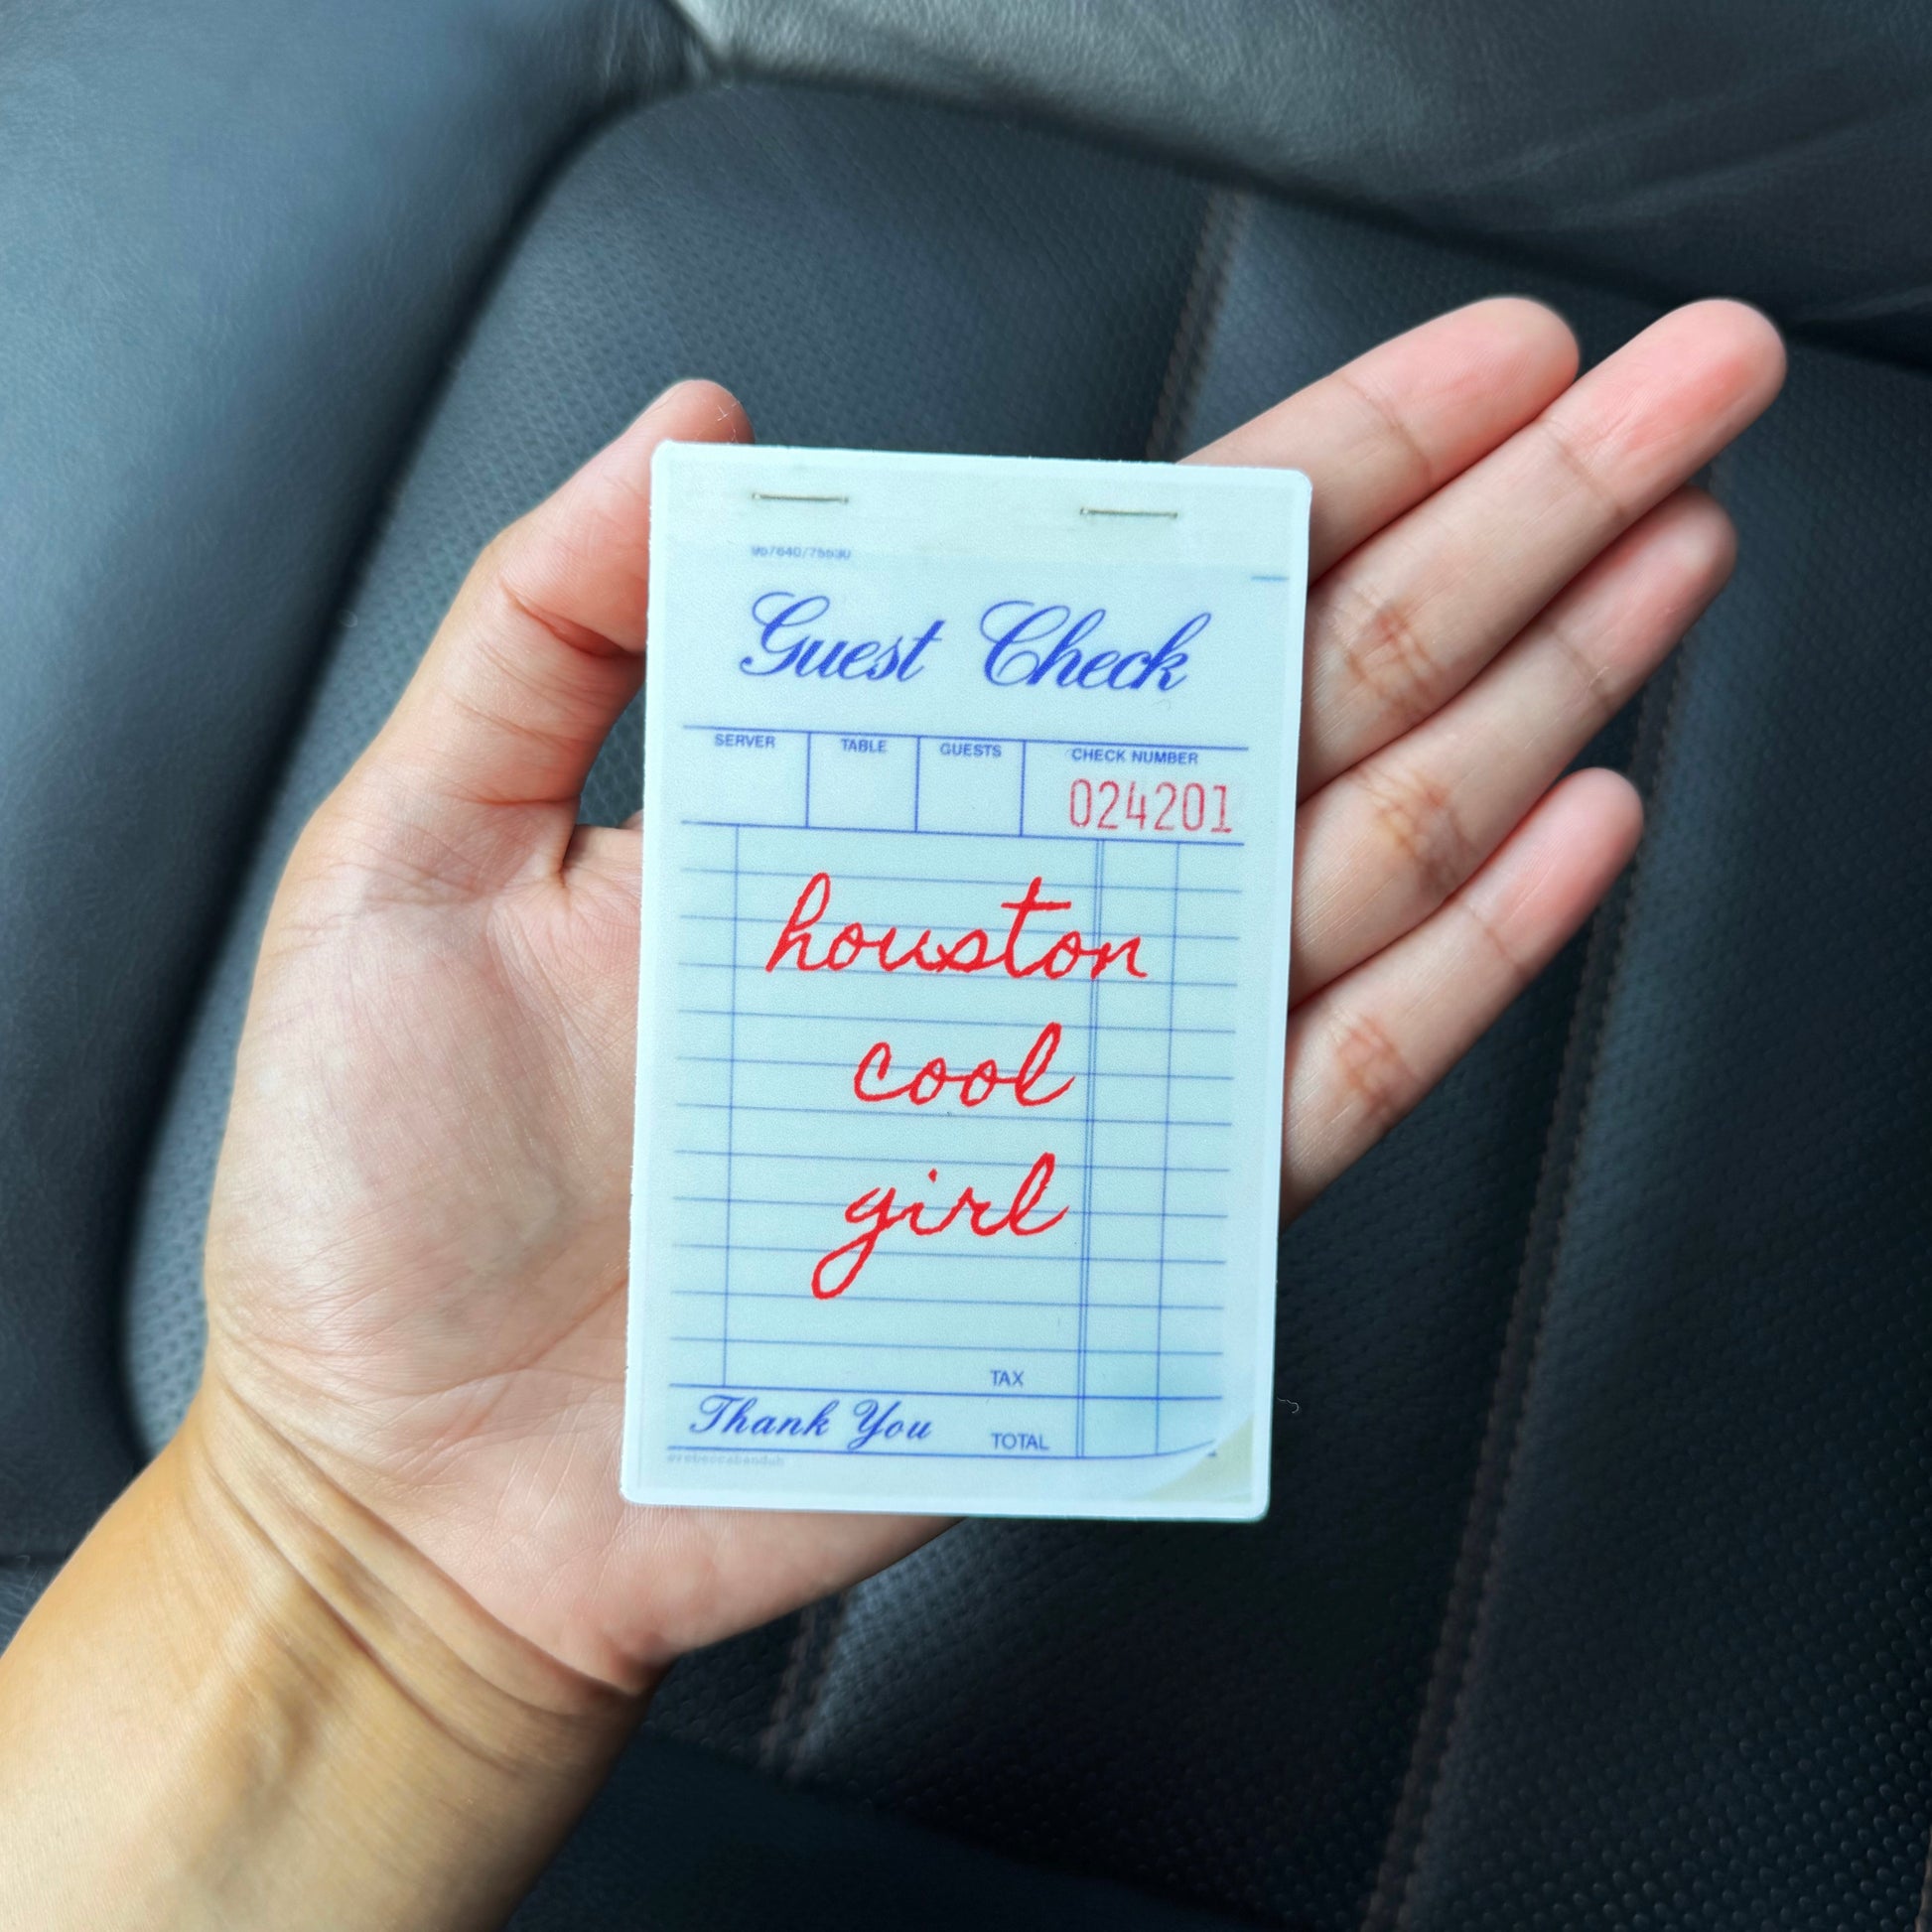 Guest Check
SERVER TABLE GUESTS CHECK NUMBER
024201
houston
cool
girl
TAX
Thank You TOTAL